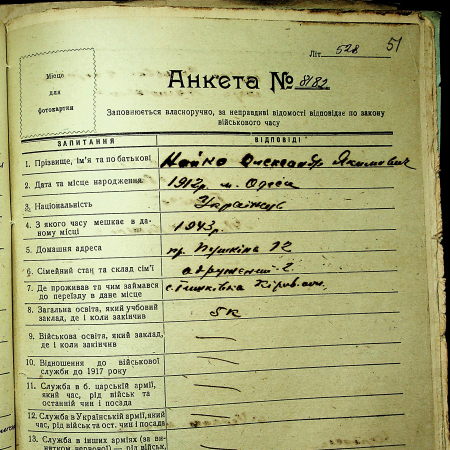 Літ. 528 51
Місце
для
фотокартки
Анкета № 8182
Заповнюється власноручно, за неправдиві відомості відповідає по закону
військового часу
ЗАПИТАННЯ ВІДПОВІДІ
1. Прізвище, ім'я та по батькові Олександр Якимович
2. Дата та місце народження 1912р. м. Одеса
3. Національність Українець
4. З якого часу мешкає в да-
ному місці 1943р.
5. Домашня адреса пр. Пушкіна 12
6. Сімейний стан та склад сім'ї одружений 2.
7. Де проживав та чим займався
до переїзду в дане місце
8. Загальна освіта, який учбовий
заклад, де і коли закінчив 5 к
9. Військова освіта, який заклад,
де і коли закінчив
10. Відношення до військової
служби до 1917 року
11. Служба в б. царській армії,
який час, рід військ та
останній чин і посада
12. Служба в Українській армії, який
час, рід військ та ост. чин і посада
13. Служба в інших арміях (за ви-
нятком червоної) — рід військ,